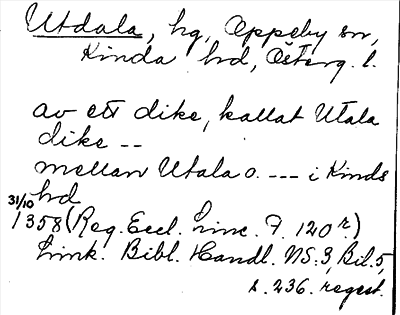 Utdala, hg, Oppeby sn,
Kinda hd, Österg. l.
av ett dike, kallat Utala
dike --
mellan Utala o. --- i Kinds
hd
31/10
1358 (Reg. Eccl. Linc. F. 120 r.)
Link. Bibl. Handl. NS:3, Bil. 5,
s. 236. regest.